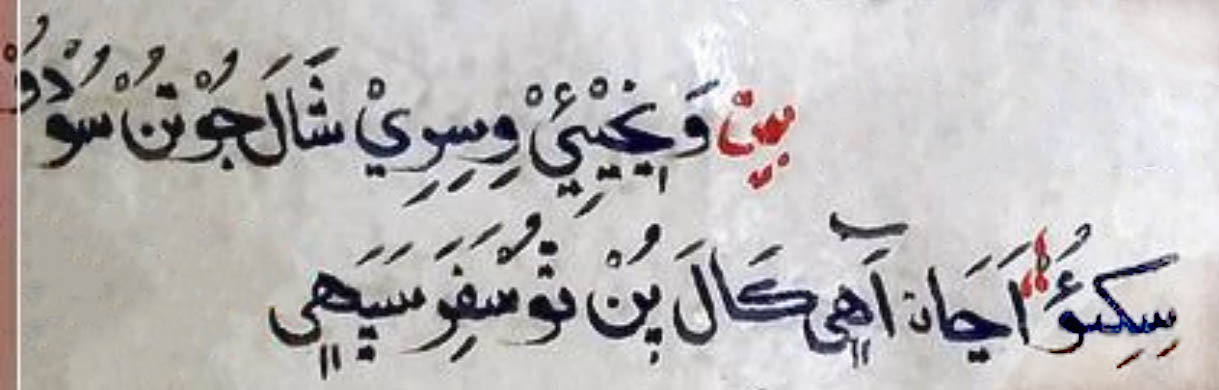 بيت وَڃِيْئَيْ وِسِرِيْ شَالَ جُوْتُنْ سُوْدُوْ
سِکِئُو اَڃان آهِي کَالَ پُنْ تُوْ سَفِرَ سَيَهِي